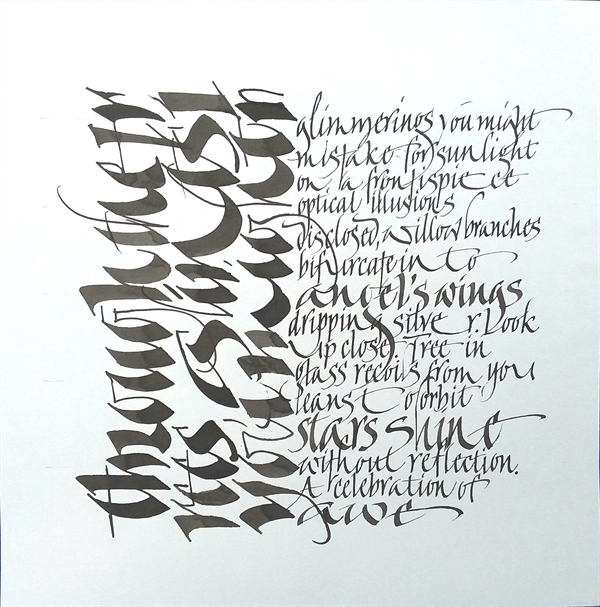 through
glimmerings you might
mistake for sunlight
on a frontispiece
optical illusions
disclosed, willow branches
bifurcate in to
angel's wings
dripping silver. Look
up close. Tree in
glass recoils from you
leans to orbit
stars shine
without reflection.
A celebration of
awe